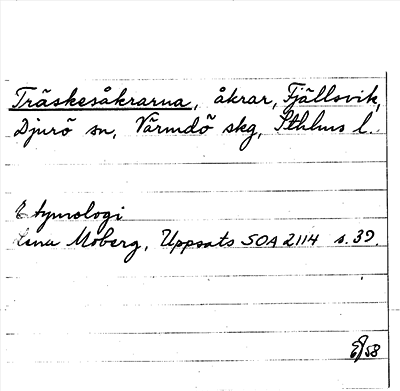 Träskesåkrarna, åkrar, Fjällsvik,
Djurö sn, Värmdö skg, Sthlms l.
Etymologi
Lena Moberg, Uppsats SOA 2114 s. 39.
58